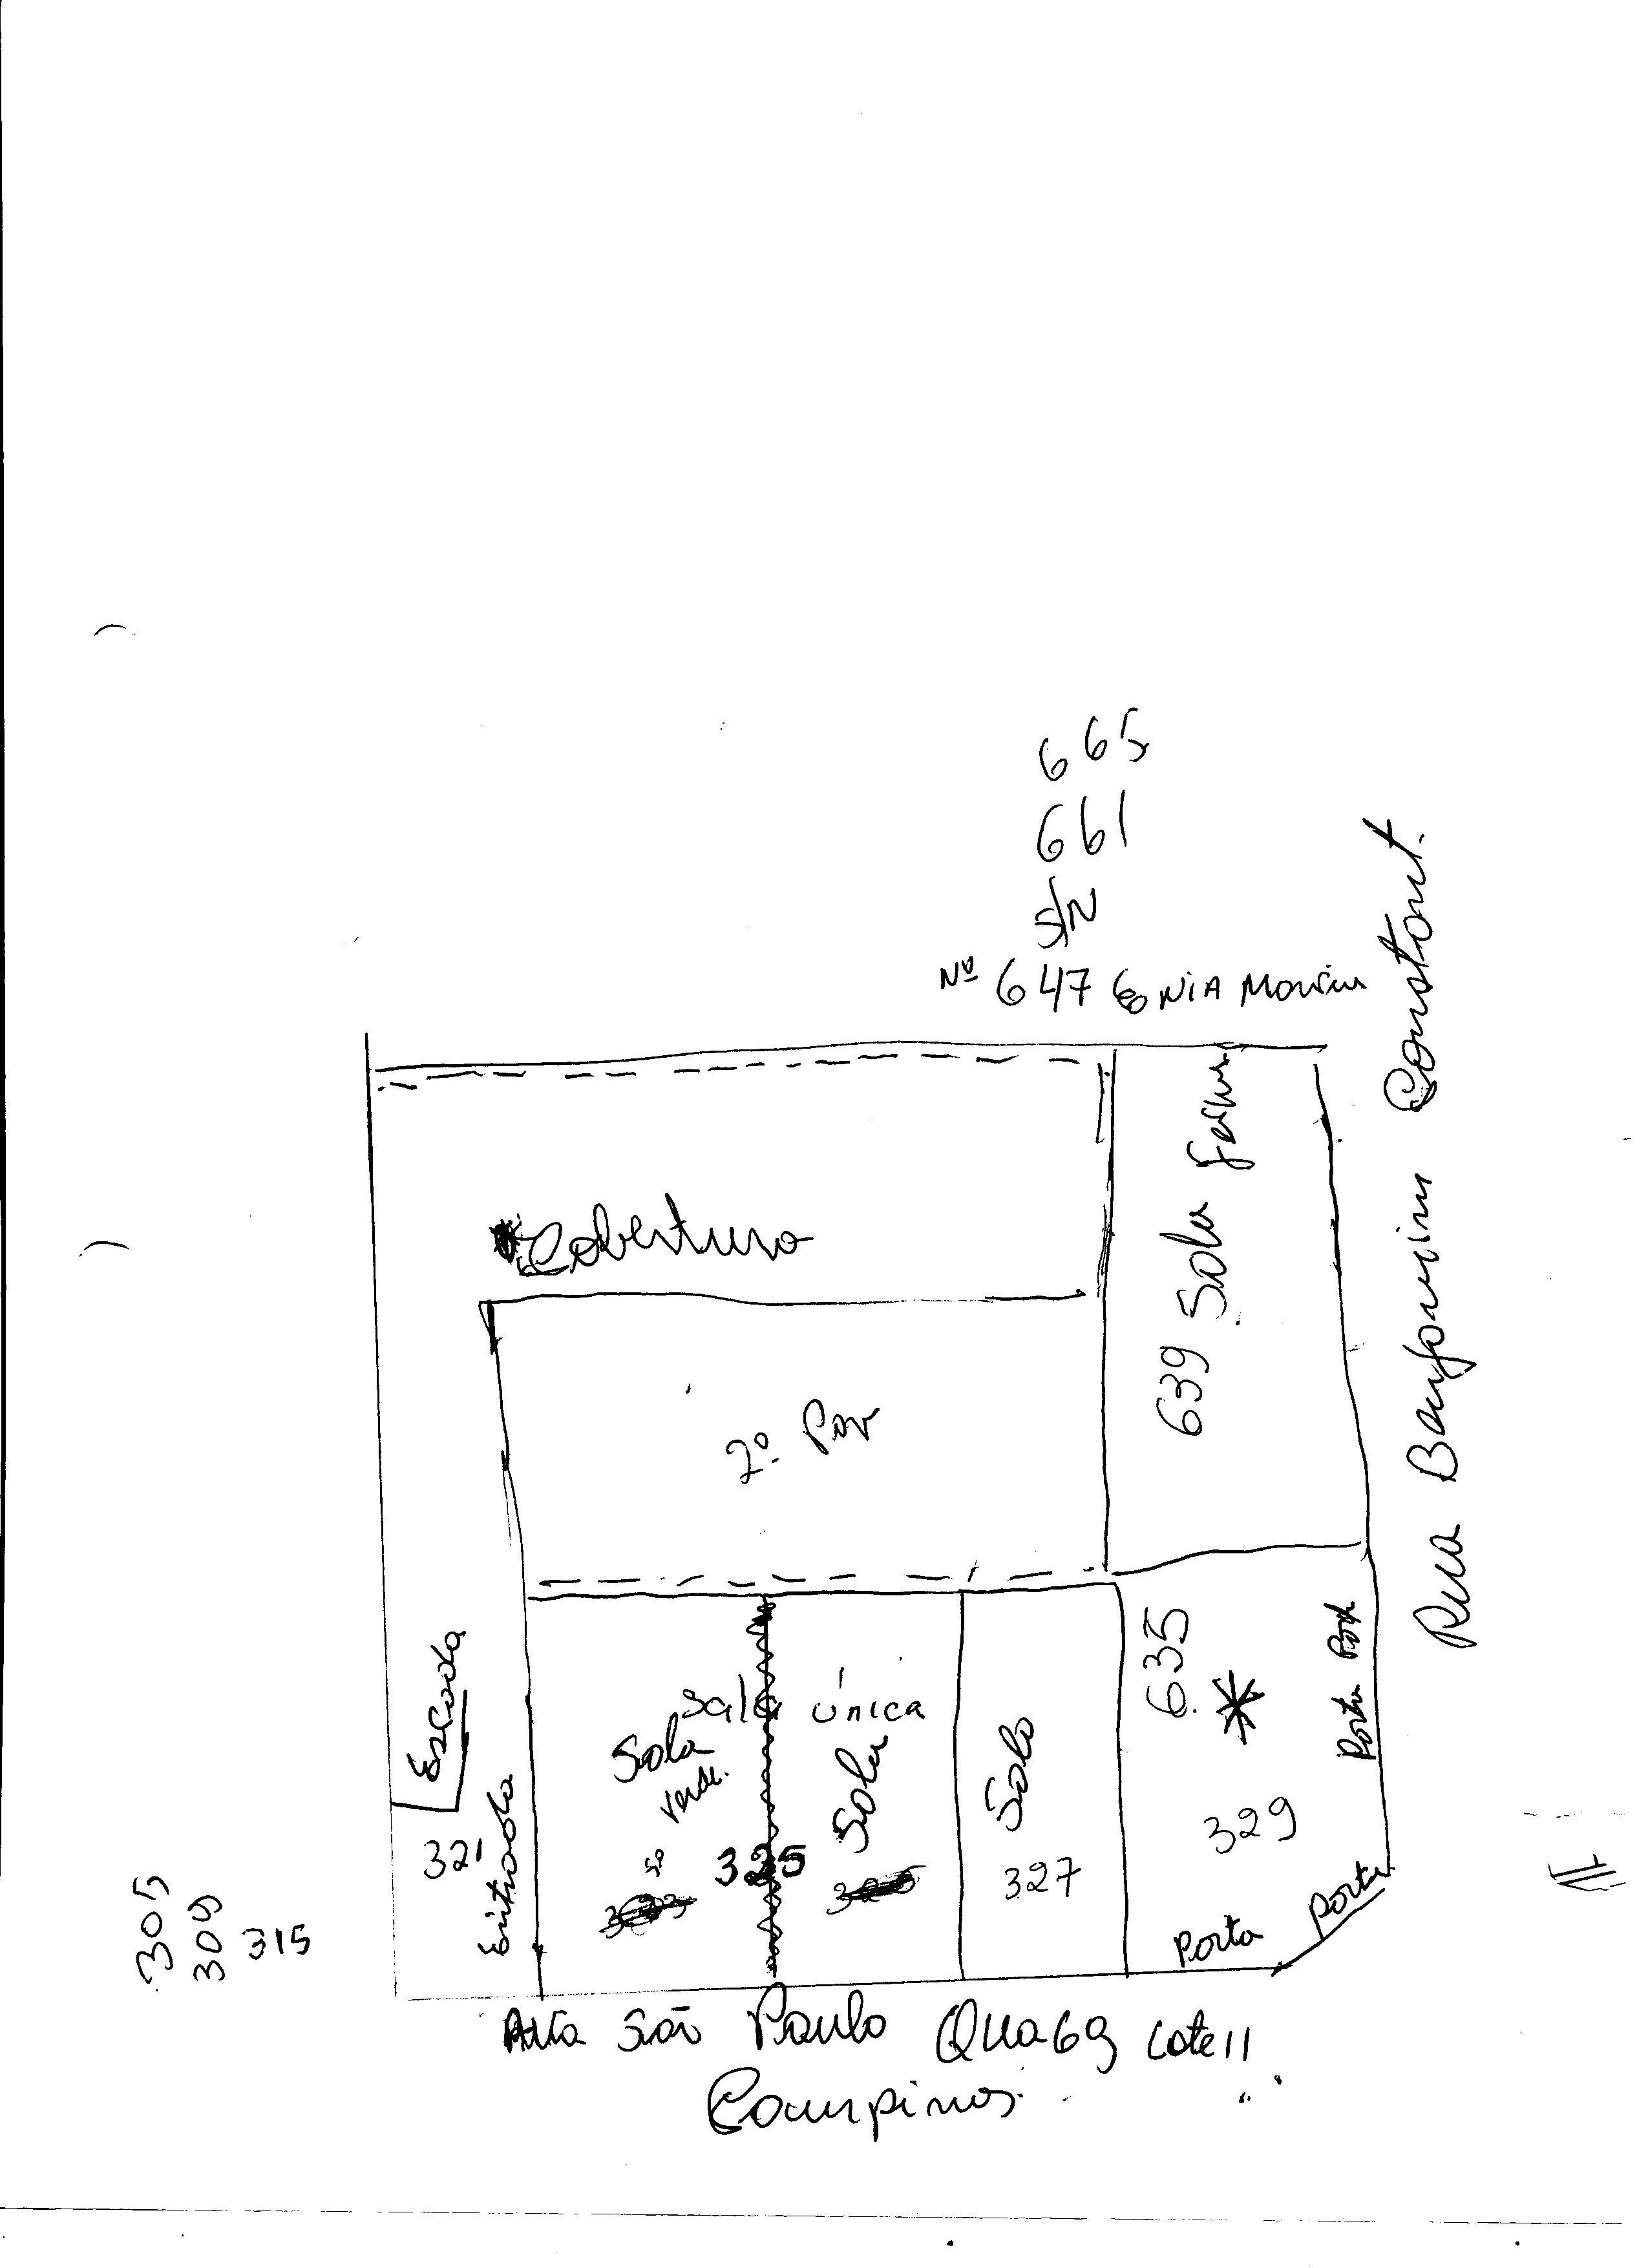 665
661
S/N
Nº 647
Rua Benjamim Constant.
639 Sala
Cobertura
2º Pav
Escada
321
Entrada
Sala única
Sala
Verde.
325
Sala
Sala
327
635
329
Porta
Porta
Porta
305
309
315
São Paulo Qua 69 Lote 11
Campinas